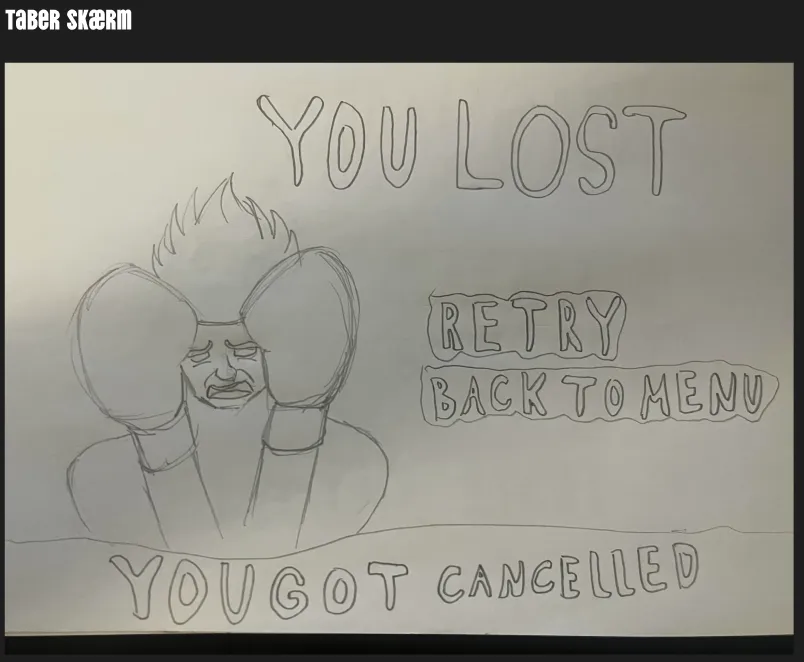 TABER SKÆRM
YOU LOST
RETRY
BACK TO MENU
YOU GOT CANCELLED